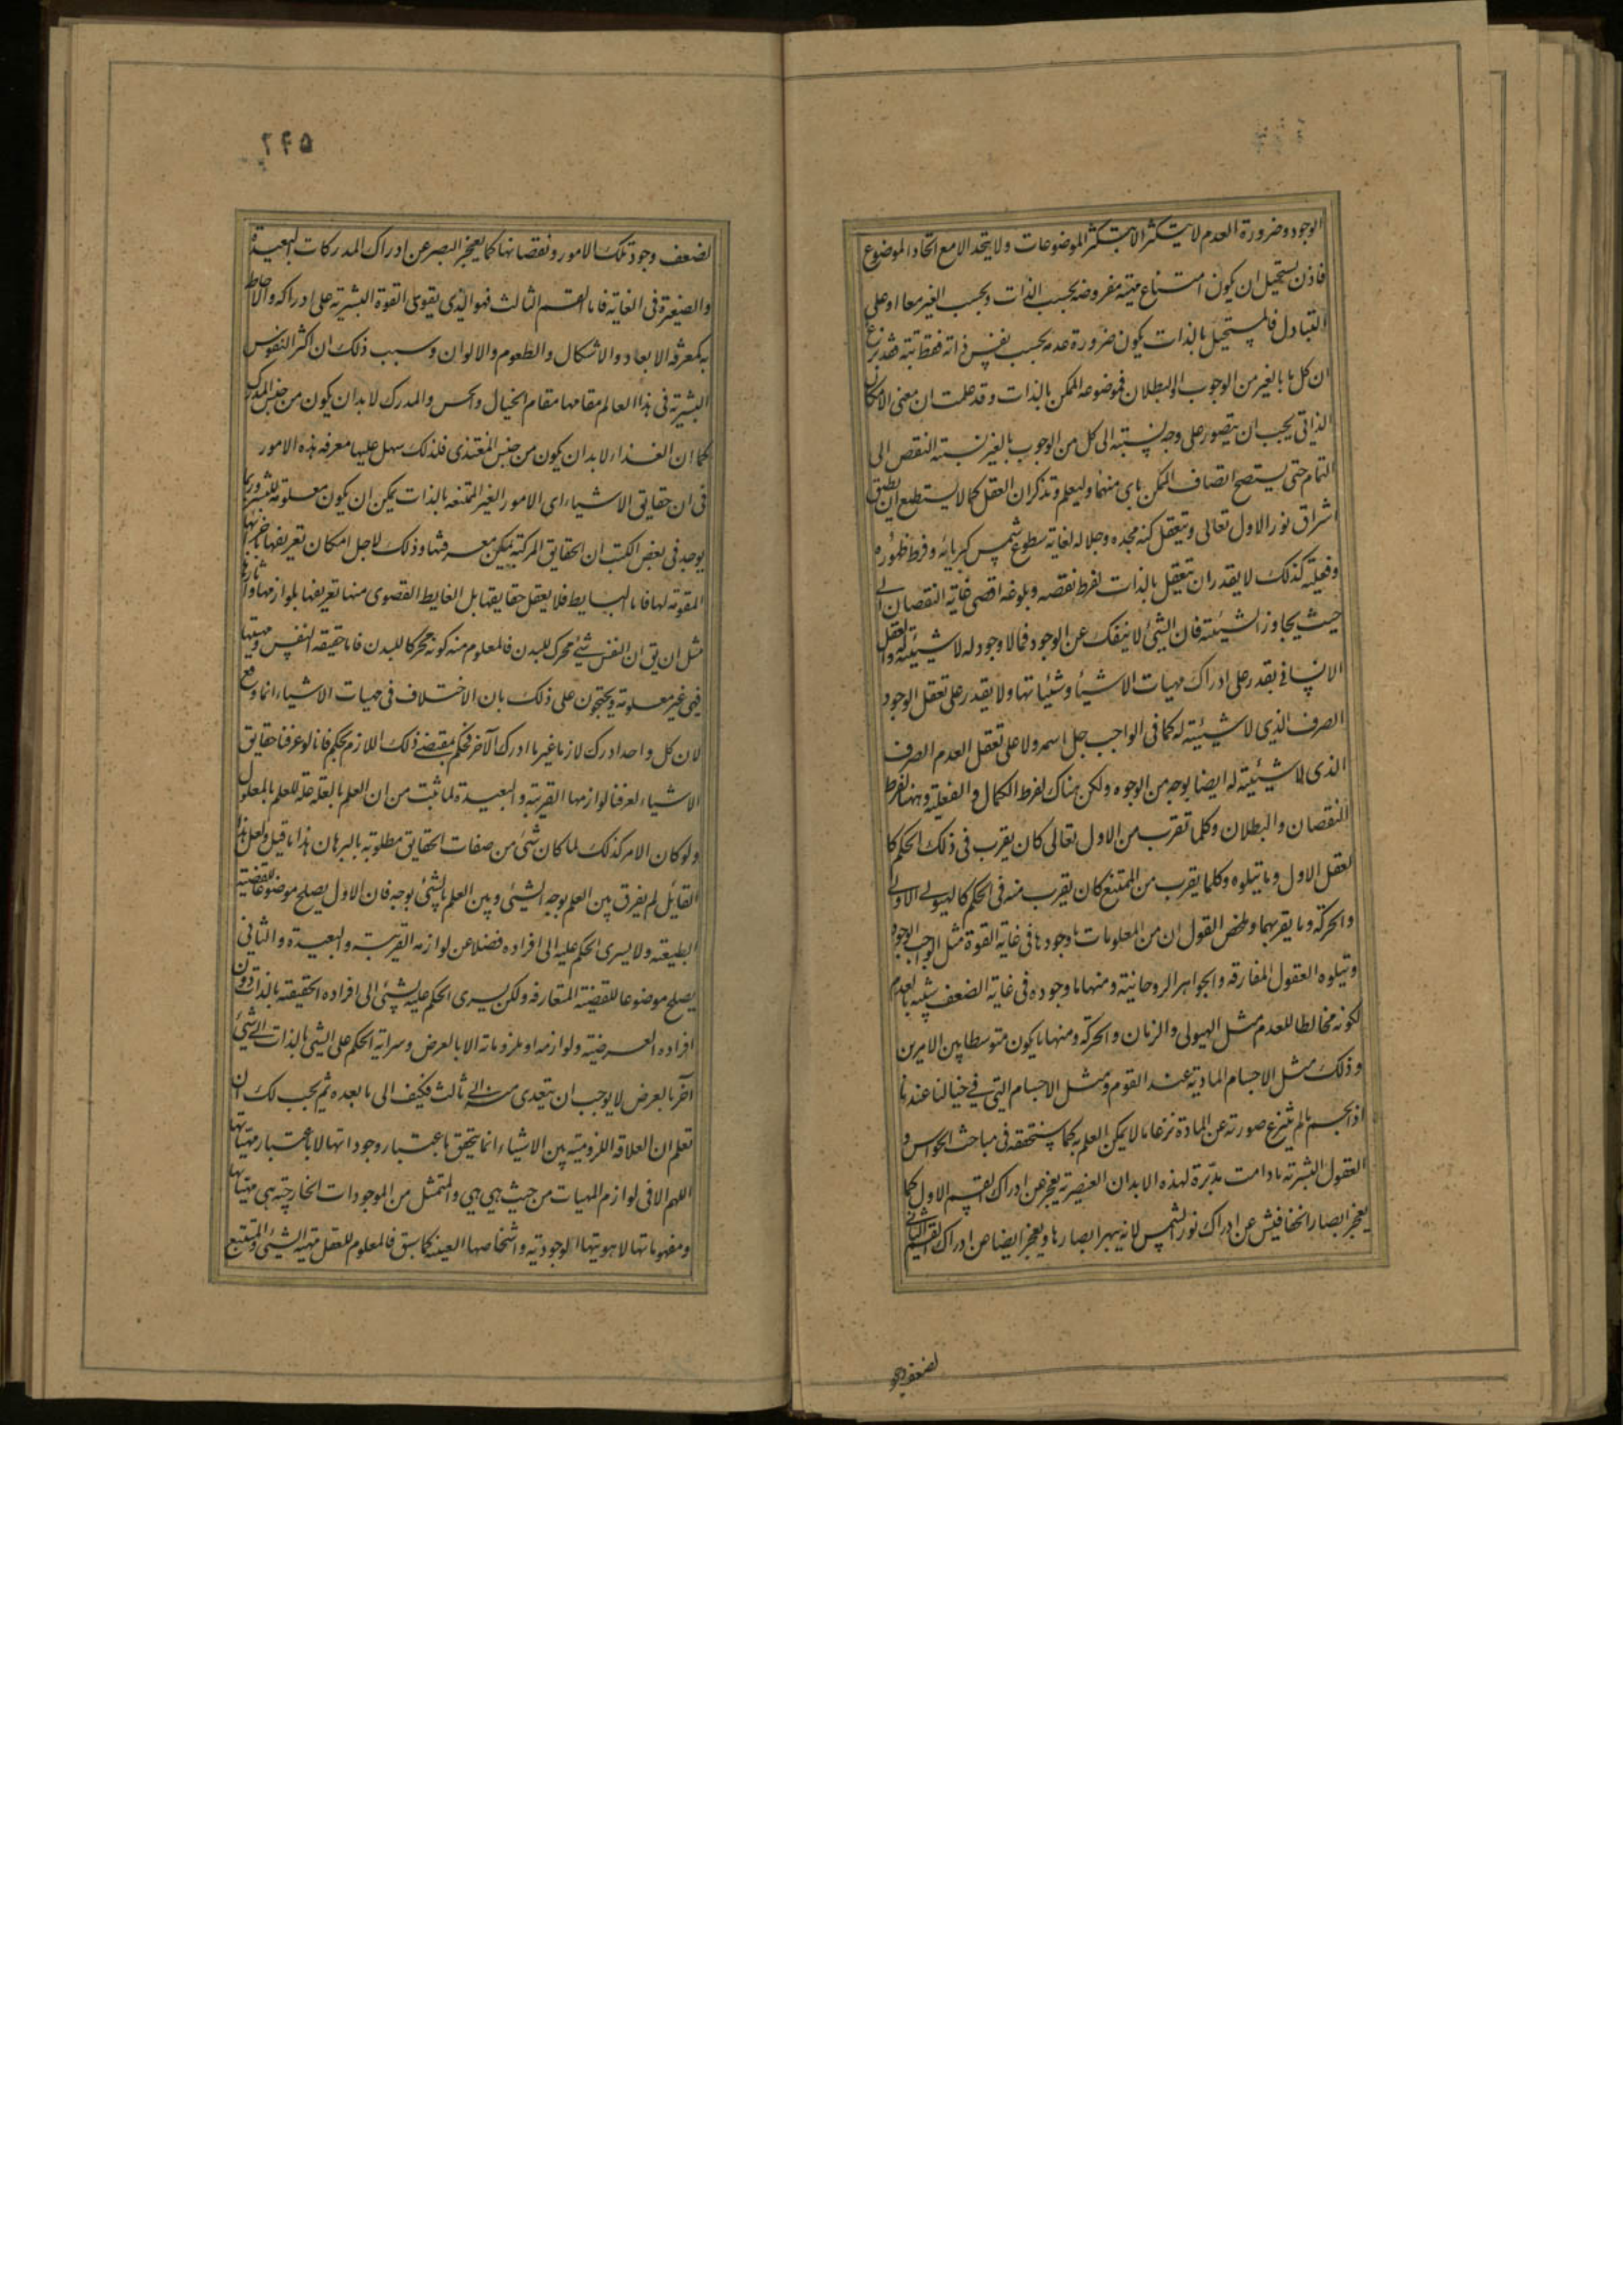 الوجود وضرورة العدم لا يتكثر الا بتكثر الموضوعات ولا يتحد الا مع اتحاد الموضوع
فاذن يستحيل ان يكون امتناع مهيته مفروضه بحسب الذات وبحسب الغير معا او على
التبادل فالمستحيل بالذات يكون ضرورة عدمه بحسب نفس ذاته فقط تبته فقد بزغ
ان كل ما بالغير من الوجوب او البطلان فموضوعه الممكن بالذات وقد علمت ان معنى الامكان
الذاتي يجب ان يتصور على وجه نسبته الى كل من الوجوب بالغير نسبته النقص الى
التمام حتى يستصح اتصاف الممكن باى منهما وليعلم وتذكر ان العقل كما لا يستطيع ان يطيق
اشراق نور الاول تعالى ويتعقل كنه مجده وجلاله لغاية سطوع شمس كبريائه وفرط ظهوره
وفعليته كذلك لا يقدر ان يتعقل بالذات لفرط نقصه وبلوغه اقصى غاية النقصان الى
حيث يجاوز الشيئية فان الشئ لا ينفك عن الوجود فما لا وجود له لا شيئية له والعقل
الانسانى يقدر على ادراك مهيات الاشياء وشيئياتها ولا يقدر على تعقل الوجود
الصرف الذى لا شيئية له كما فى الواجب جل اسمه ولا على تعقل العدم الصرف
الذى لا شيئية له ايضا بوجه من الوجوه ولكن هناك لفرط الكمال والفعلية وههنا لفرط
النقصان والبطلان وكلما تقرب من الاول تعالى كان يقرب فى ذلك الحكم كا
لعقل الاول وما يتلوه وكلما يقرب من الممتنع كان يقرب منه فى الحكم كالهيولى الاولى
والحركة وما يقربهما وملخص القول ان من المعلومات ما وجودها فى غاية القوة مثل الواجب الوجود
ويتلوه العقول المفارقه والجواهر الروحانية ومنها ما وجوده فى غاية الضعف شبيه بالعدم
لكونه مخالطا للعدم مثل الهيولى والزمان والحركة ومنها ما يكون متوسطا بين الامرين
وذلك مثل الاجسام المادية عند القوم ومثل الاجسام التى فى خيالنا عندنا
اذ الجسم ما لم ينزع صورته عن المادة نزعا ما لا يمكن العلم به كما سنحققه فى مباحث الحواس و
العقول البشرية ما دامت مدبرة لهذه الابدان العنصرية يعجز عن ادراك القسم الاول كما
يعجز ابصار الخفافيش عن ادراك نور الشمس لانه يبهر ابصارها ويعجز ايضا عن ادراك القسم الثانى
لضعف وجو
٢۴۵
لضعف وجود تلك الامور ونقصانها كما يعجز البصر عن ادراك المدركات البعيدة
والصغيرة فى الغاية فاما القسم الثالث فهو الذى يقوى القوة البشرية على ادراكه والاحاطة
به كمعرفة الابعاد والاشكال والطعوم والالوان وسبب ذلك ان اكثر النفوس
البشرية فى هذا العالم مقامها مقام الخيال والحس والمدرك لا بد ان يكون من جنس المدرك
كما ان الغذاء لا بد ان يكون من جنس المغتذى فلذلك سهل عليها معرفة هذه الامور
فى ان حقايق الاشياء اى الامور الغير الممتنعه بالذات يمكن ان يكون معلومة للبشر وربما
يوجد فى بعض الكتب ان الحقايق المركبة يمكن معرفتها وذلك لاجل امكان تعريفها باجزائها
المقومة لها فاما البسايط فلا يعقل حقايقها بل الغايط القصوى منها تعريفها بلوازمها واثارها
مثل ان يق ان النفس شئ محرك للبدن فالمعلوم منه كونه محركا للبدن فاما حقيقه النفس ومهيتها
فهى غير معلومة ويحتجون على ذلك بان الاختلاف فى مهيات الاشياء انما وقع
لان كل واحد ادرك لازما غير ما ادرك الآخر فحكم بمقتضى ذلك اللازم بحكم فانا لو عرفنا حقايق
الاشياء لعرفنا لوازمها القريبة والبعيدة لما ثبت من ان العلم بالعلة علة للعلم بالمعلول
ولو كان الامر كذلك لما كان شئ من صفات الحقايق مطلوبة بالبرهان هذا ما قيل ولعل هذا
القايل لم يفرق بين العلم بوجه الشئ وبين العلم بالشئ بوجه فان الاول يصلح موضوعا للقضية
الطبيعيه ولا يسرى الحكم عليه الى افراده فضلا عن لوازمه القريبة والبعيدة والثانى
يصلح موضوعا للقضية المتعارفه ولكن يسرى الحكم عليه لشئ الى افراده الحقيقية بالذات دون
افراده العرضية ولوازمه او ملزوماته الا بالعرض وسراية الحكم على الشئ بالذات الى شئ
آخر بالعرض لا يوجب ان يتعدى منه الى ثالث فكيف الى ما بعده ثم يجب لك ان
تعلم ان العلاقه اللزومية بين الاشياء انما يتحقق باعتبار وجوداتها لا باعتبار مهياتها
اللهم الا فى لوازم المهيات من حيث هى هى والمتمثل من الموجودات الخارجية هى مهياتها
ومفهوماتها لا هوياتها الوجودية واشخاصها العينيه كما سبق فالمعلوم للعقل مهية الشئ والمستتبع